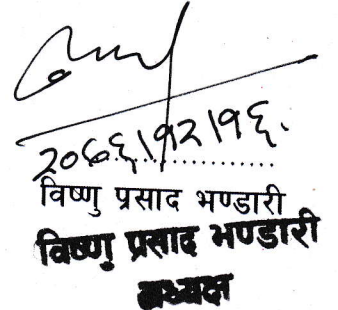 २०७६।१२।१६.
विष्णु प्रसाद भण्डारी
विष्णु प्रसाद भण्डारी
अध्यक्ष